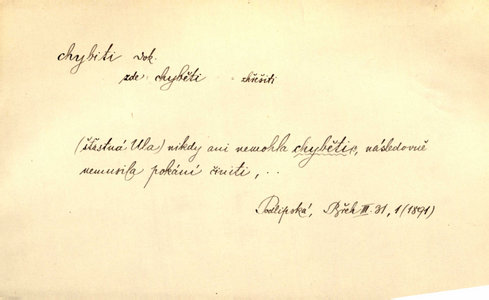 chybiti dok.
zde chyběti zhřešiti
(šťastná Ula) nikdy ani nemohla chyběti, následovně
nemusila pokání činiti, . .
Podlipská, Břch III. 31, 1 (1891)